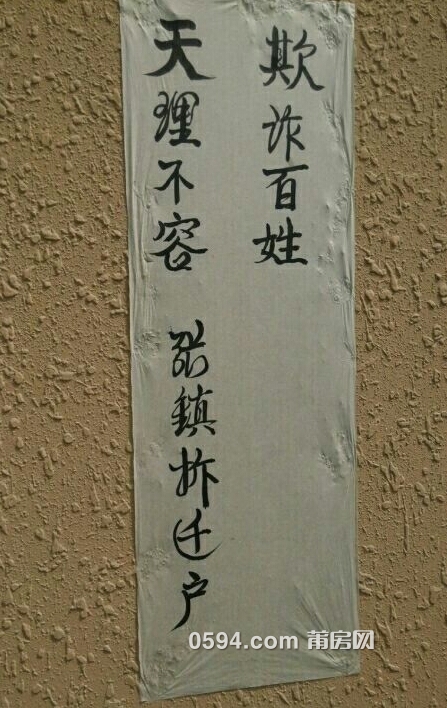 欺诈百姓
天理不容
镇拆迁户
0594.com 莆房网